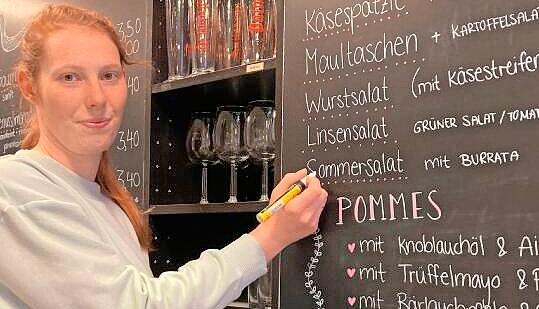 Käsespätzle
Maultaschen + KARTOFFELSALAT
Wurstsalat (mit Käsestreifen
Linsensalat GRÜNER SALAT / TOMAT
Sommersalat mit BURRATA
POMMES
♥ mit Knoblauchöl & Ai
♥ mit Trüffelmayo & P
♥ mit Bärlauch
3,50
3,40
3,40
3,40